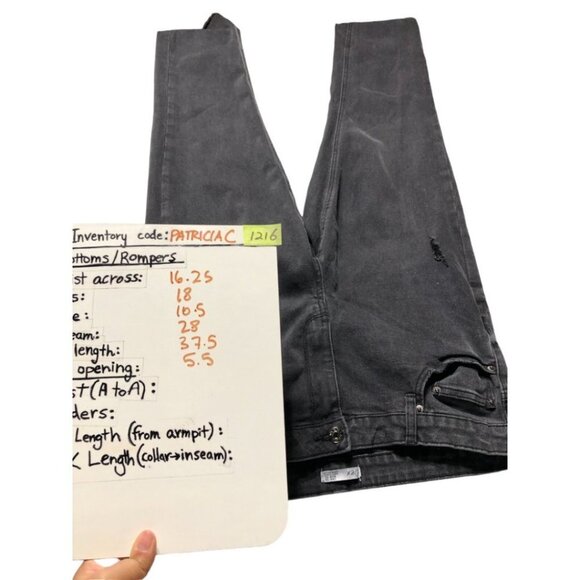 Inventory code: PATRICIA C 1216
ottoms/Rompers
ist across: 16.25
s: 18
e: 10.5
eam: 28
length: 37.5
opening: 5.5
st (A to A):
ders:
Length (from armpit):
Length (collar→inseam):